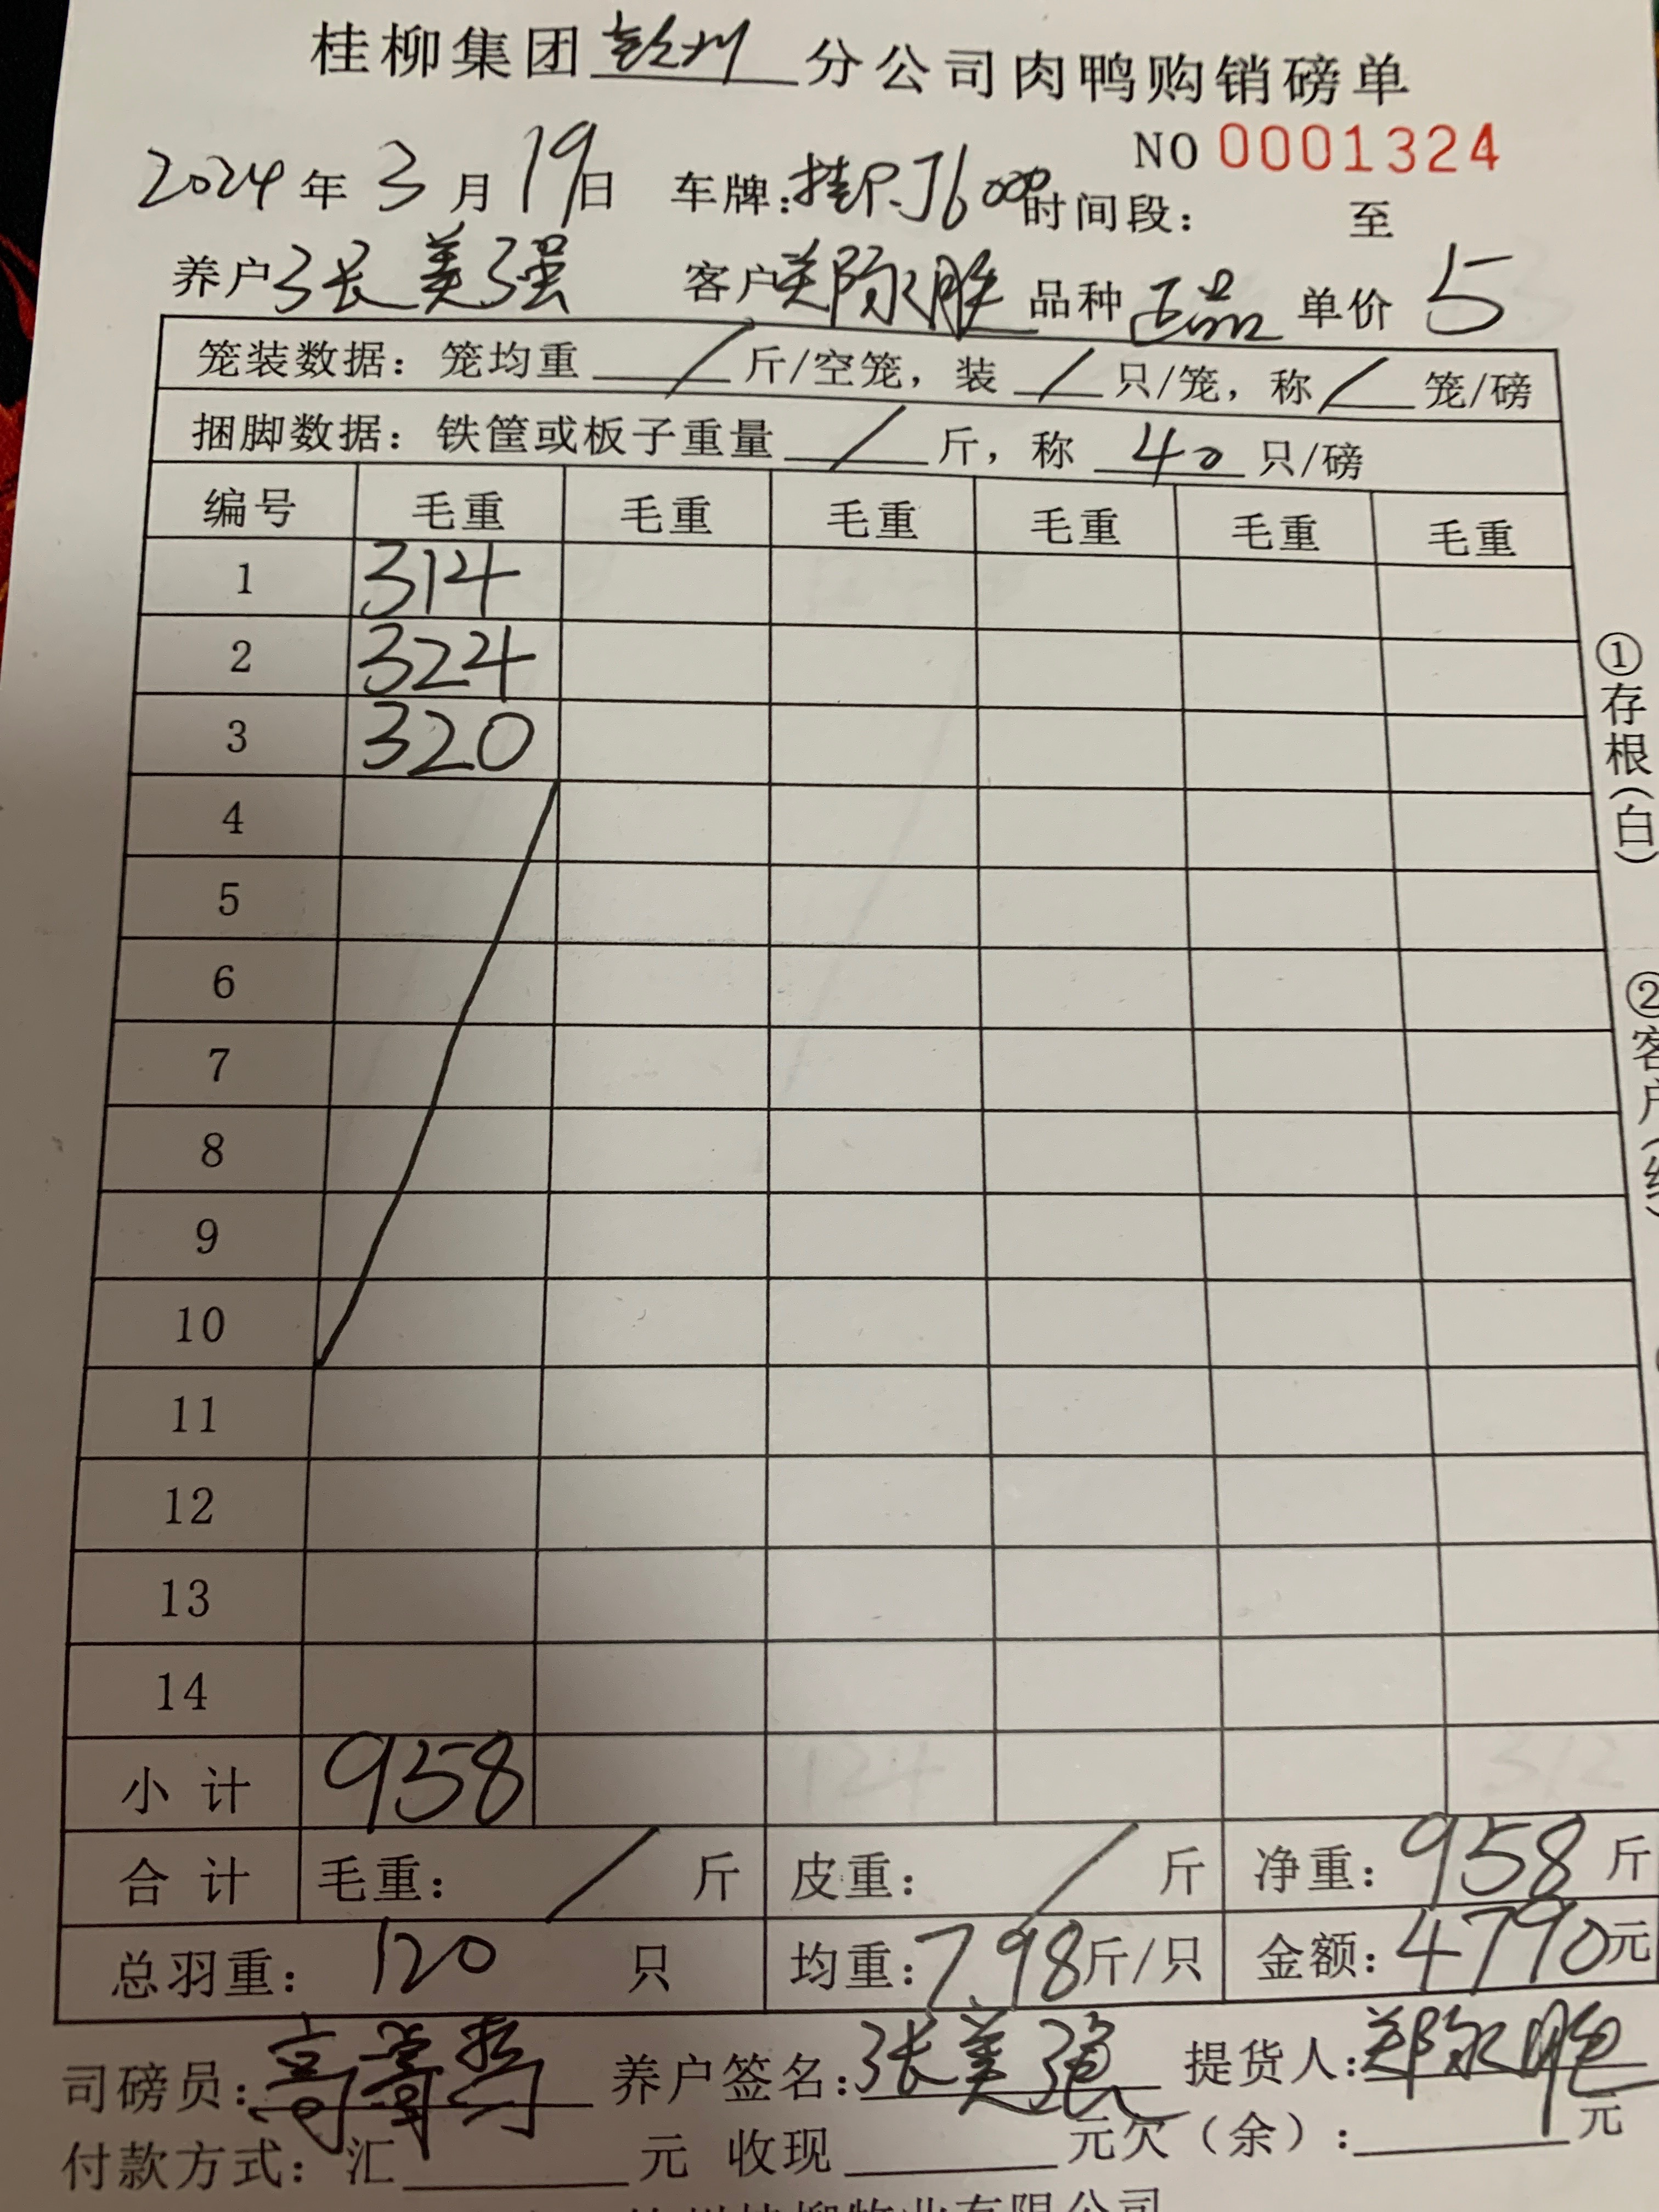 桂柳集团彭州分公司肉鸭购销磅单
NO 0001324
2024年3月19日 车牌:桂P.J6000 时间段: 至
养户 张美强 客户 郑永胜 品种 正品 单价 5
笼装数据:笼均重 / 斤/空笼,装 / 只/笼,称 / 笼/磅
捆脚数据:铁筐或板子重量 / 斤,称 40 只/磅
编号 毛重 毛重 毛重 毛重 毛重 毛重
1 314
2 324
3 320
4
5
6
7
8
9
10
11
12
13
14
小计 958
合计 毛重: / 斤 皮重: / 斤 净重:958斤
总羽重: 120 只 均重:7.98斤/只 金额:4790元
司磅员: 养户签名:张美强 提货人:郑永胜
付款方式:汇 元 收现 元欠(余): 元
①存根(白)
②客户(红)